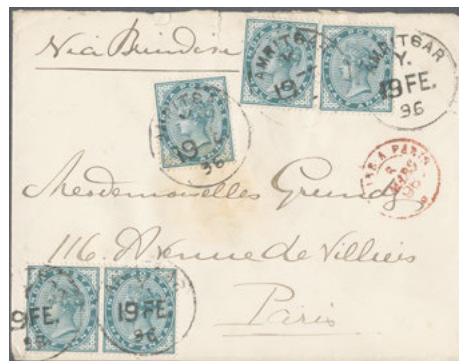 Via Brindisi
AMRITSAR
19
AMRITSAR
Y.
19 FE.
96
19
96
A PARIS
MARS
96
Mesdemoiselles Grundy
116. Avenue de Villiers
Paris
19 FE.
19 FE.
96